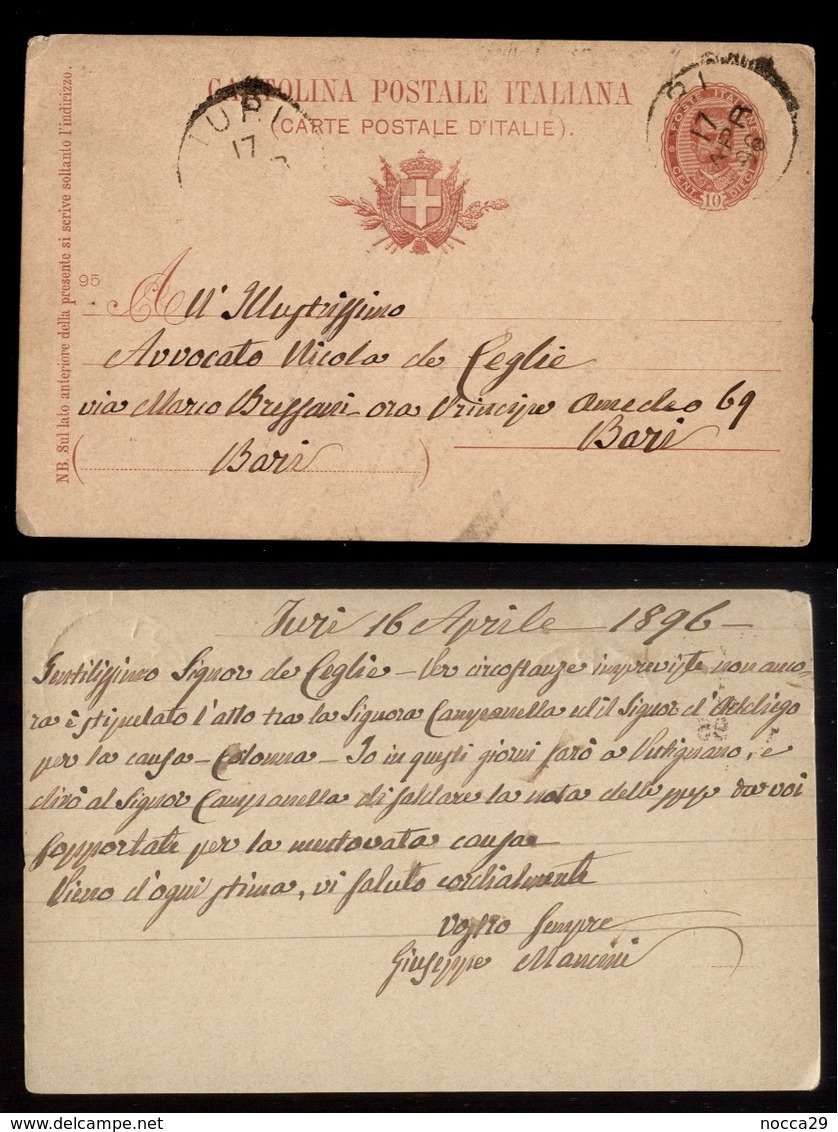 CARTOLINA POSTALE ITALIANA
(CARTE POSTALE D'ITALIE).
TURI
17
17 APR 96
POSTE ITALIANE
CENT. 10 DIECI
NB. Sul lato anteriore della presente si scrive soltanto l'indirizzo.
95
All' Illustrissimo
Avvocato Nicola de Ceglie
via Marco Bressani ora Principe Amedeo 69
Bari
(Bari)
Turi 16 Aprile 1896 –
Gentilissimo Signor de Ceglie – Per circostanze impreviste non anco-
ra è stipulato l'atto tra la Signora Campanella ed il Signor d'Addiego
per la causa – Colonna – Io in questi giorni sarò a Putignano, e
dirò al Signor Campanella di saldare la nota delle spese da voi
sopportate per la mentovata causa
Pieno d'ogni stima, vi saluto cordialmente
Vostro sempre
Giuseppe Mancini
delcampe.net
nocca29